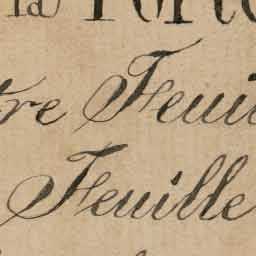 la Porte
tre Feuil
Feuille